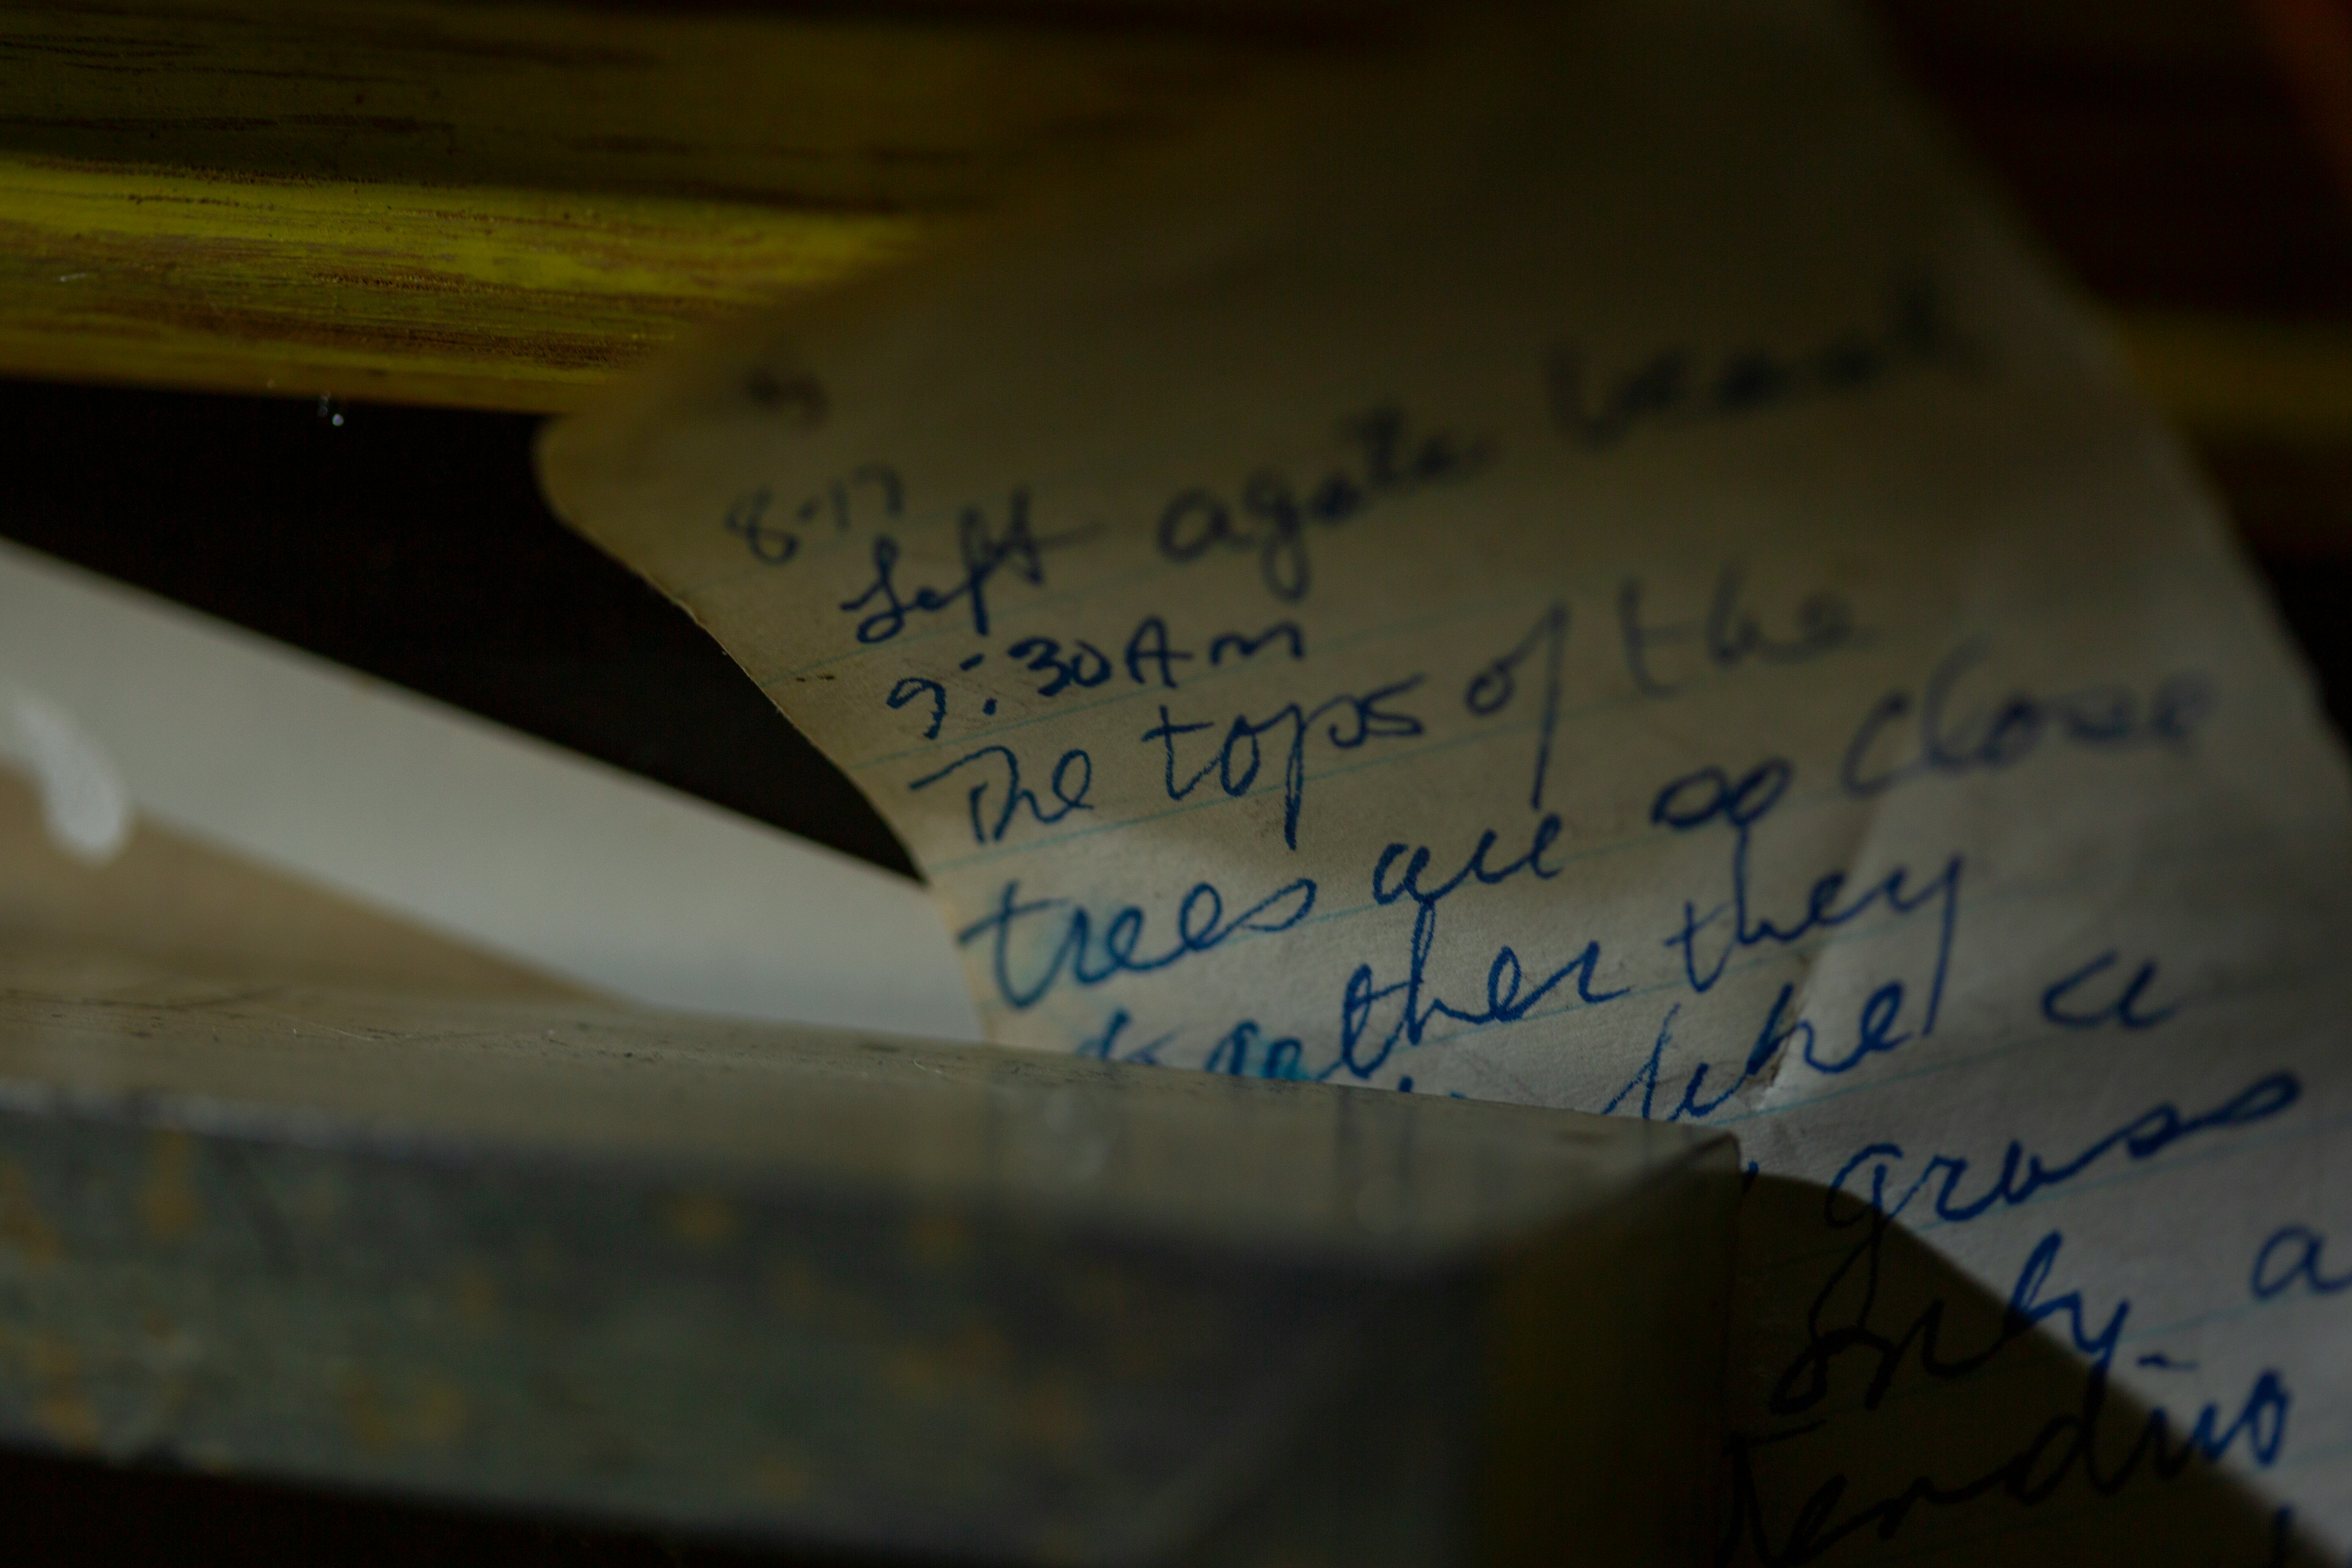 8-17
Left agate
9:30 AM
The tops of the
trees are so close
together they
like a
grass
only a